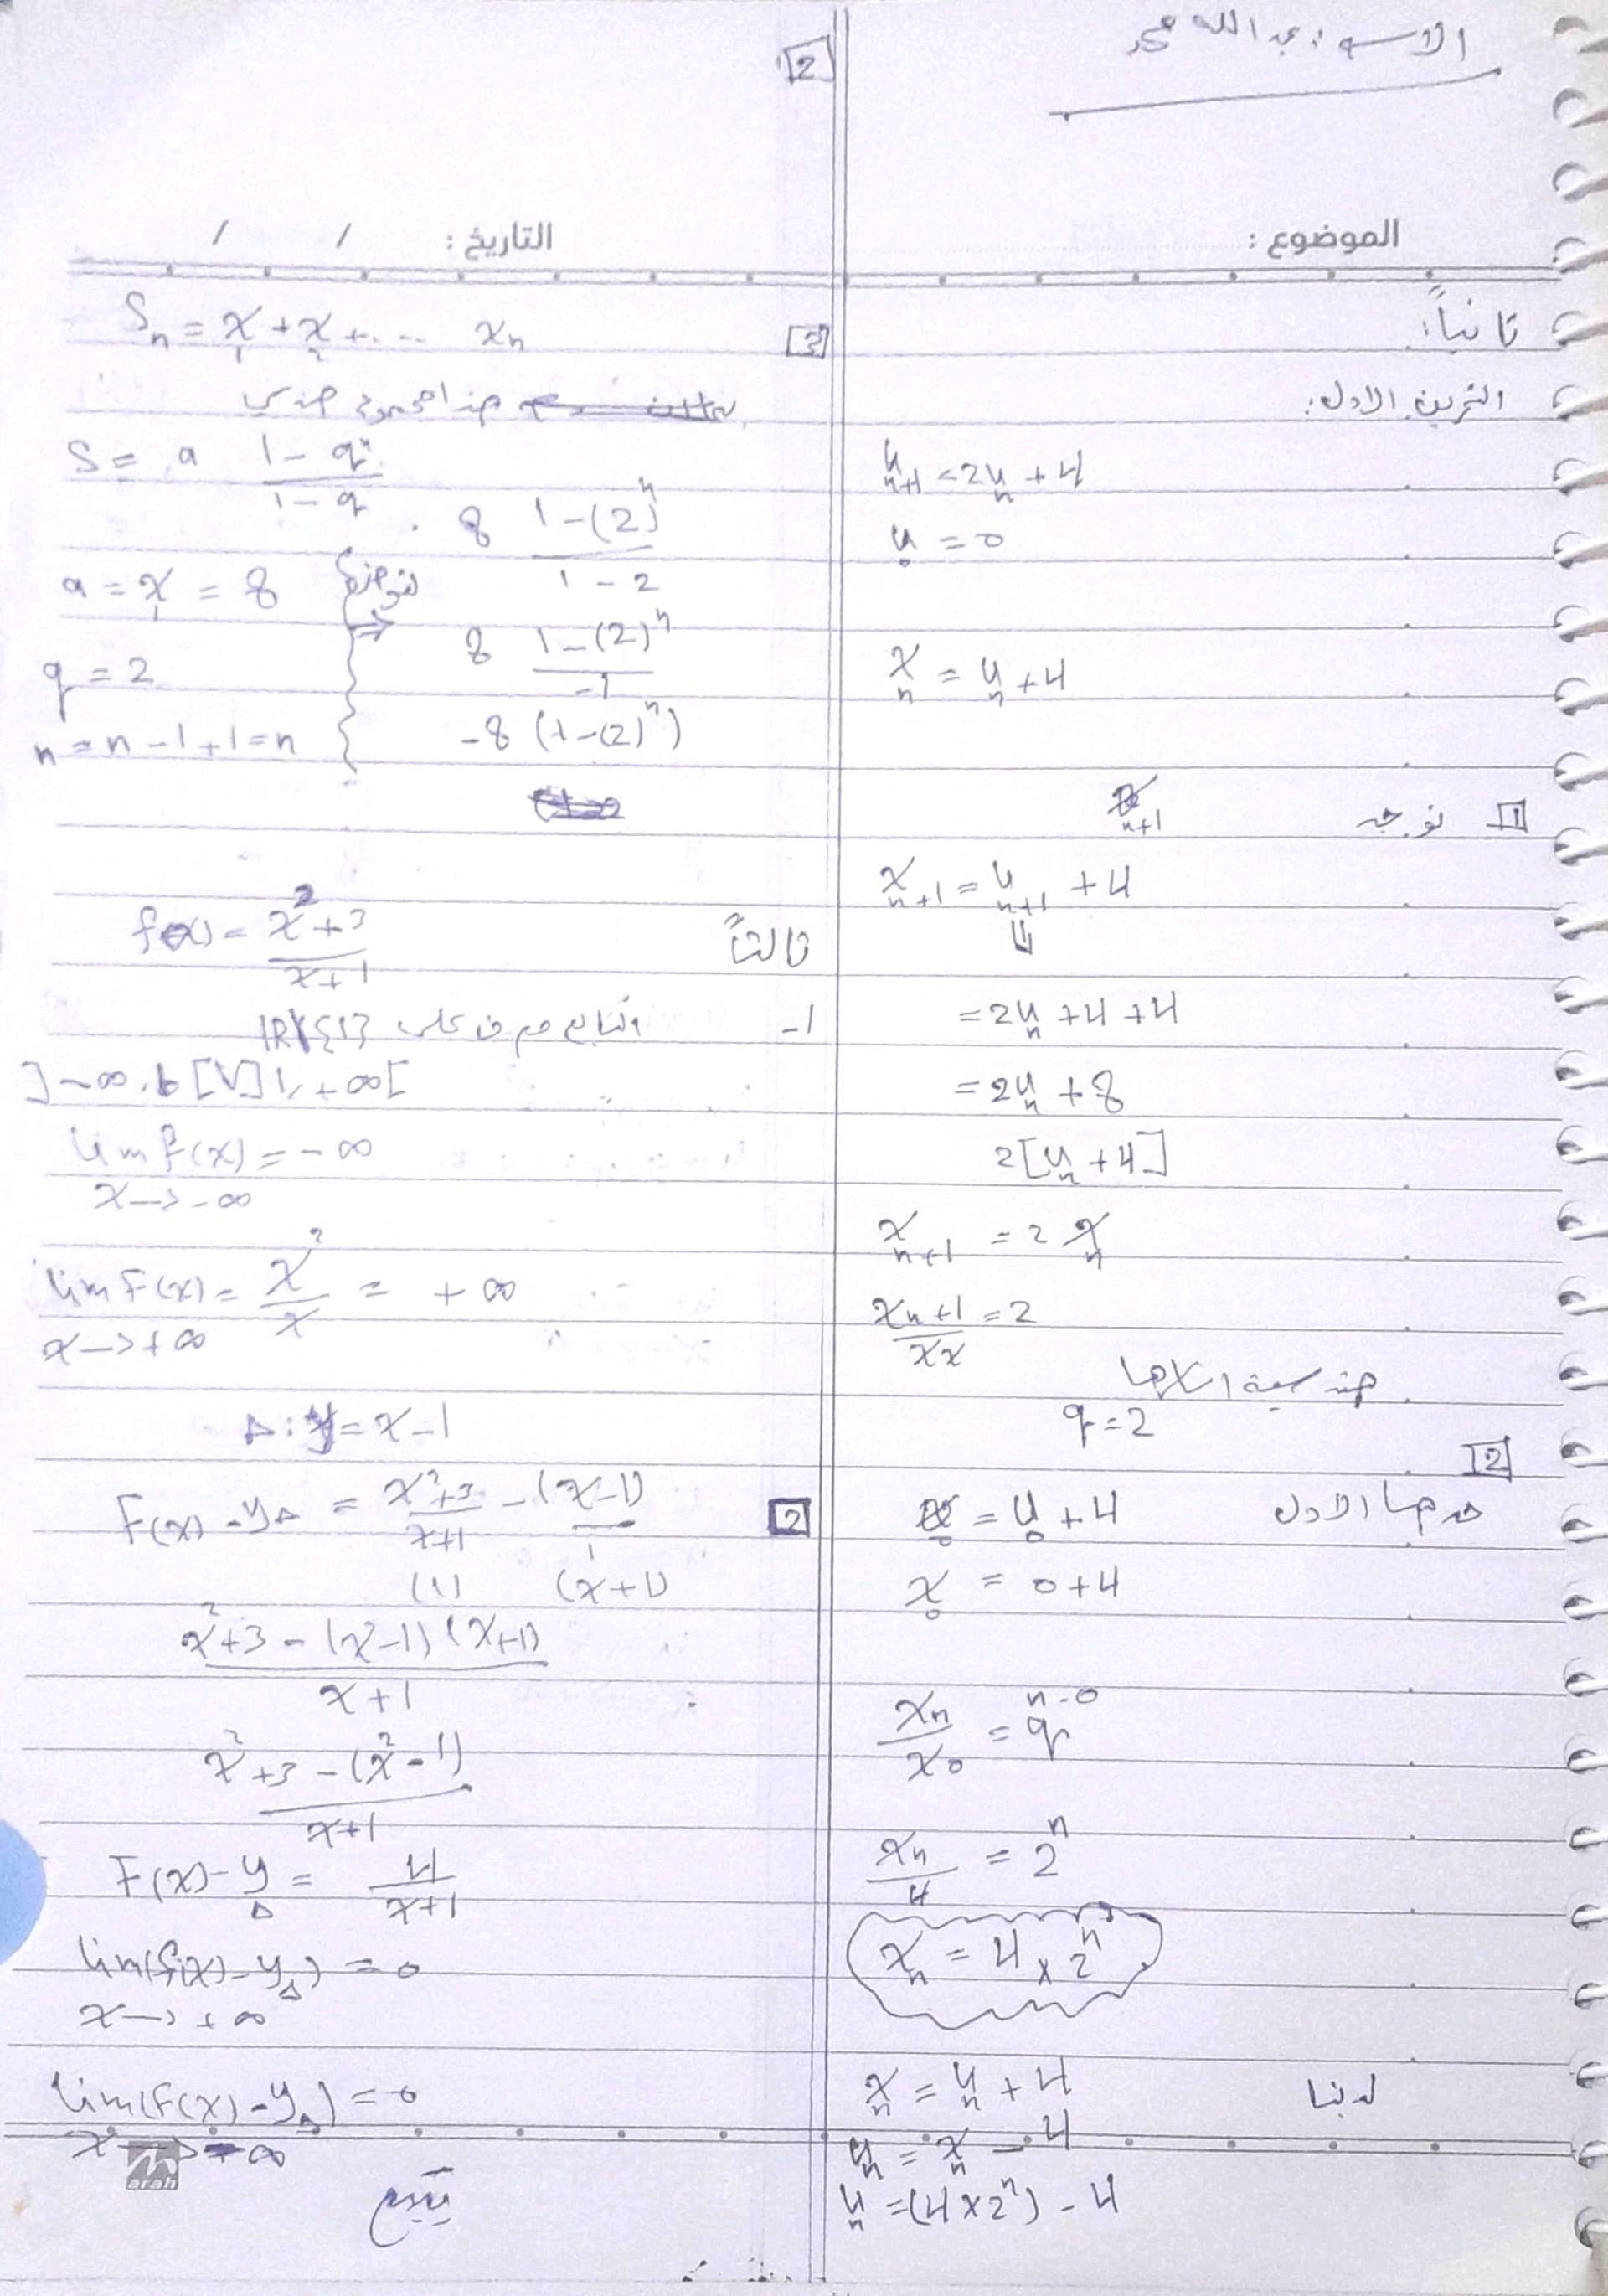 الاسم : عبد الله محمد
2
الموضوع :
التاريخ : / /
ثانياً:
التمرين الاول:
u_{n+1} = 2u_n + 4
u_0 = 0
x_n = u_n + 4
1 نوجد x_{n+1}
x_{n+1} = u_{n+1} + 4
⇓
= 2u_n + 4 + 4
= 2u_n + 8
2[u_n + 4]
x_{n+1} = 2 x_n
\frac{x_{n+1}}{x_x} = 2
هندسية اساسها
q = 2
2
حدها الاول x_0 = u_0 + 4
x_0 = 0 + 4
\frac{x_n}{x_0} = q^{n-0}
\frac{x_n}{4} = 2^n
x_n = 4 × 2^n
لدينا x_n = u_n + 4
u_n = x_n - 4
u_n = (4 × 2^n) - 4
3 S_n = x_1 + x_2 + .... x_n
هذا مجموع هندسي
S = a \frac{1 - q^n}{1 - q}
8 \frac{1 - (2)^n}{1 - 2}
a = x_1 = 8
نعوض ⇒
8 \frac{1 - (2)^n}{-1}
q = 2
n = n - 1 + 1 = n
-8 (1 - (2)^n)
ثالثاً f(x) = \frac{x^2 + 3}{x + 1}
1- التابع معرف على IR\{1}
]-∞, b[ V ]1, +∞[
lim f(x) = -∞
x → -∞
lim F(x) = \frac{x^2}{x} = +∞
x → +∞
Δ: y = x - 1
2 F(x) - y_Δ = \frac{x^2 + 3}{x + 1} - \frac{(x - 1)}{1}
(1) (x + 1)
\frac{x^2 + 3 - (x - 1)(x + 1)}{x + 1}
\frac{x^2 + 3 - (x^2 - 1)}{x + 1}
F(x) - y_Δ = \frac{4}{x + 1}
lim (f(x) - y_Δ) = 0
x → +∞
lim (F(x) - y_Δ) = 0
x → -∞
arah
يتبع